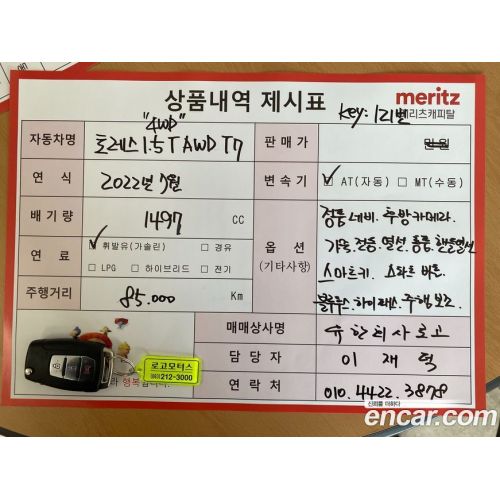 상품내역 제시표
meritz
메리츠캐피탈
"4WD"
Key: 121번
자동차명 토레스 1.5T AWD T7
판매가 만원
연식 2022년 7월
변속기 ☑ AT(자동) □ MT(수동)
배기량 1497 CC
옵션
(기타사항)
정품네비. 후방카메라.
연료
☑ 휘발유(가솔린) □ 경유
□ LPG □ 하이브리드 □ 전기
가죽. 전동. 열선. 통풍. 핸들열선
스마트키. 스타트버튼.
블루투스. 하이패스. 주행보조
주행거리 85.000 Km
매매상사명 유한회사로고
담당자 이재덕
연락처 010.4422.3878
로고모터스
212-3000
행복
신뢰를 더하다
encar.com